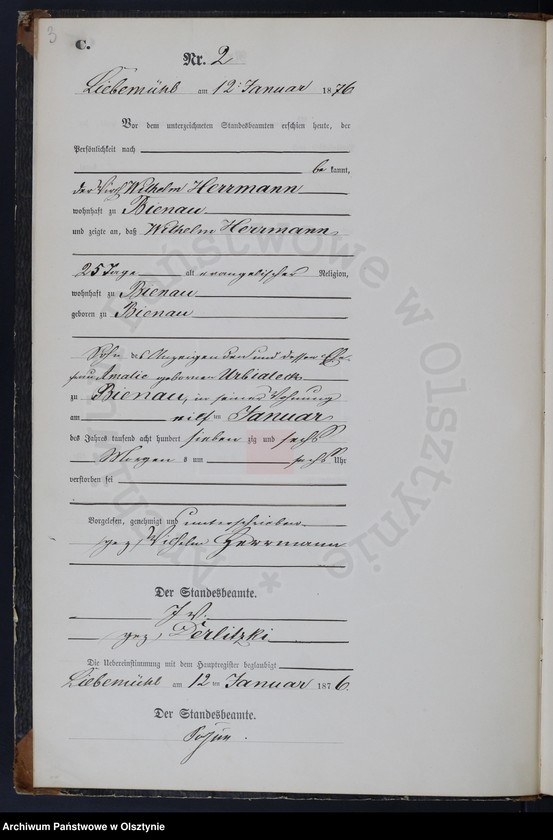 3
C.
Nr. 2
Liebemühl am 12. Januar 1876
Vor dem unterzeichneten Standesbeamten erschien heute, der
Persönlichkeit nach
be kannt,
der Wirth Wilhelm Herrmann
wohnhaft zu Bienau
und zeigte an, daß Wilhelm Herrmann,
25 Tage alt evangelischer Religion,
wohnhaft zu Bienau
geboren zu Bienau
Sohn des Anzeigenden und dessen Ehe-
frau Amalie geborenen
zu Bienau, in seiner Wohnung
am eilf ten Januar
des Jahres tausend acht hundert sieben zig und sechs
Morgen s um sechs Uhr
verstorben sei
Vorgelesen, genehmigt und unterschrieben
gez. Wilhelm Herrmann
Der Standesbeamte.
J. V.
gez. Derlitzki
Die Uebereinstimmung mit dem Hauptregister beglaubigt
Liebemühl am 12 ten Januar 1876.
Der Standesbeamte.
Archiwum Państwowe w Olsztynie
Archiwum Państwowe w Olsztynie